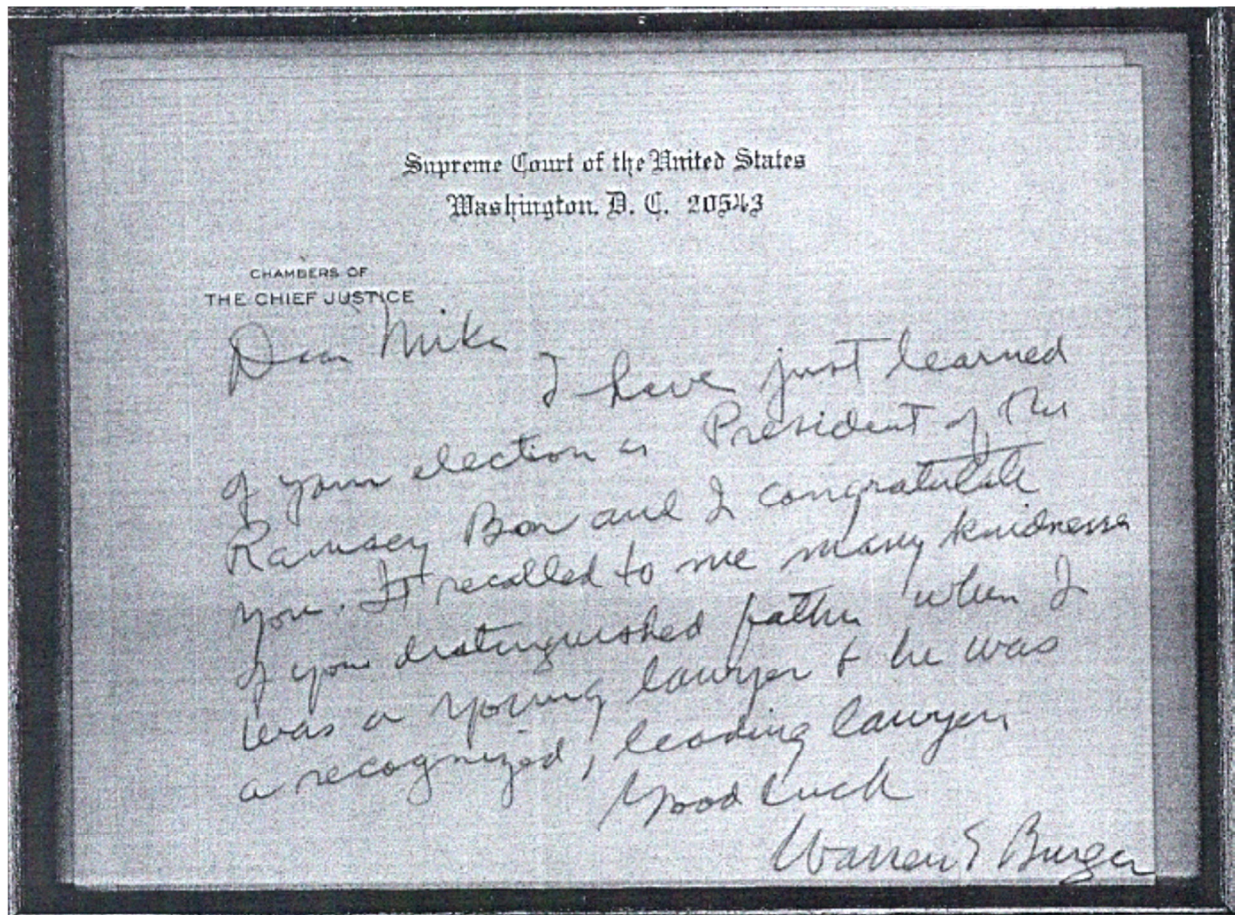 Supreme Court of the United States
Washington, D. C. 20543
CHAMBERS OF
THE CHIEF JUSTICE
Dear Mike
I have just learned
of your election as President of the
Ramsey Bar and I congratulate
you. It recalled to me many kindnesses
of your distinguished father when I
was a young lawyer & he was
a recognized, leading lawyer.
Good luck
Warren E Burger